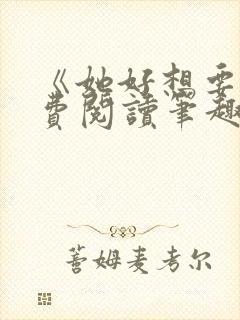 《她好想要
费阅读笔趣
蒈姆麦考尔